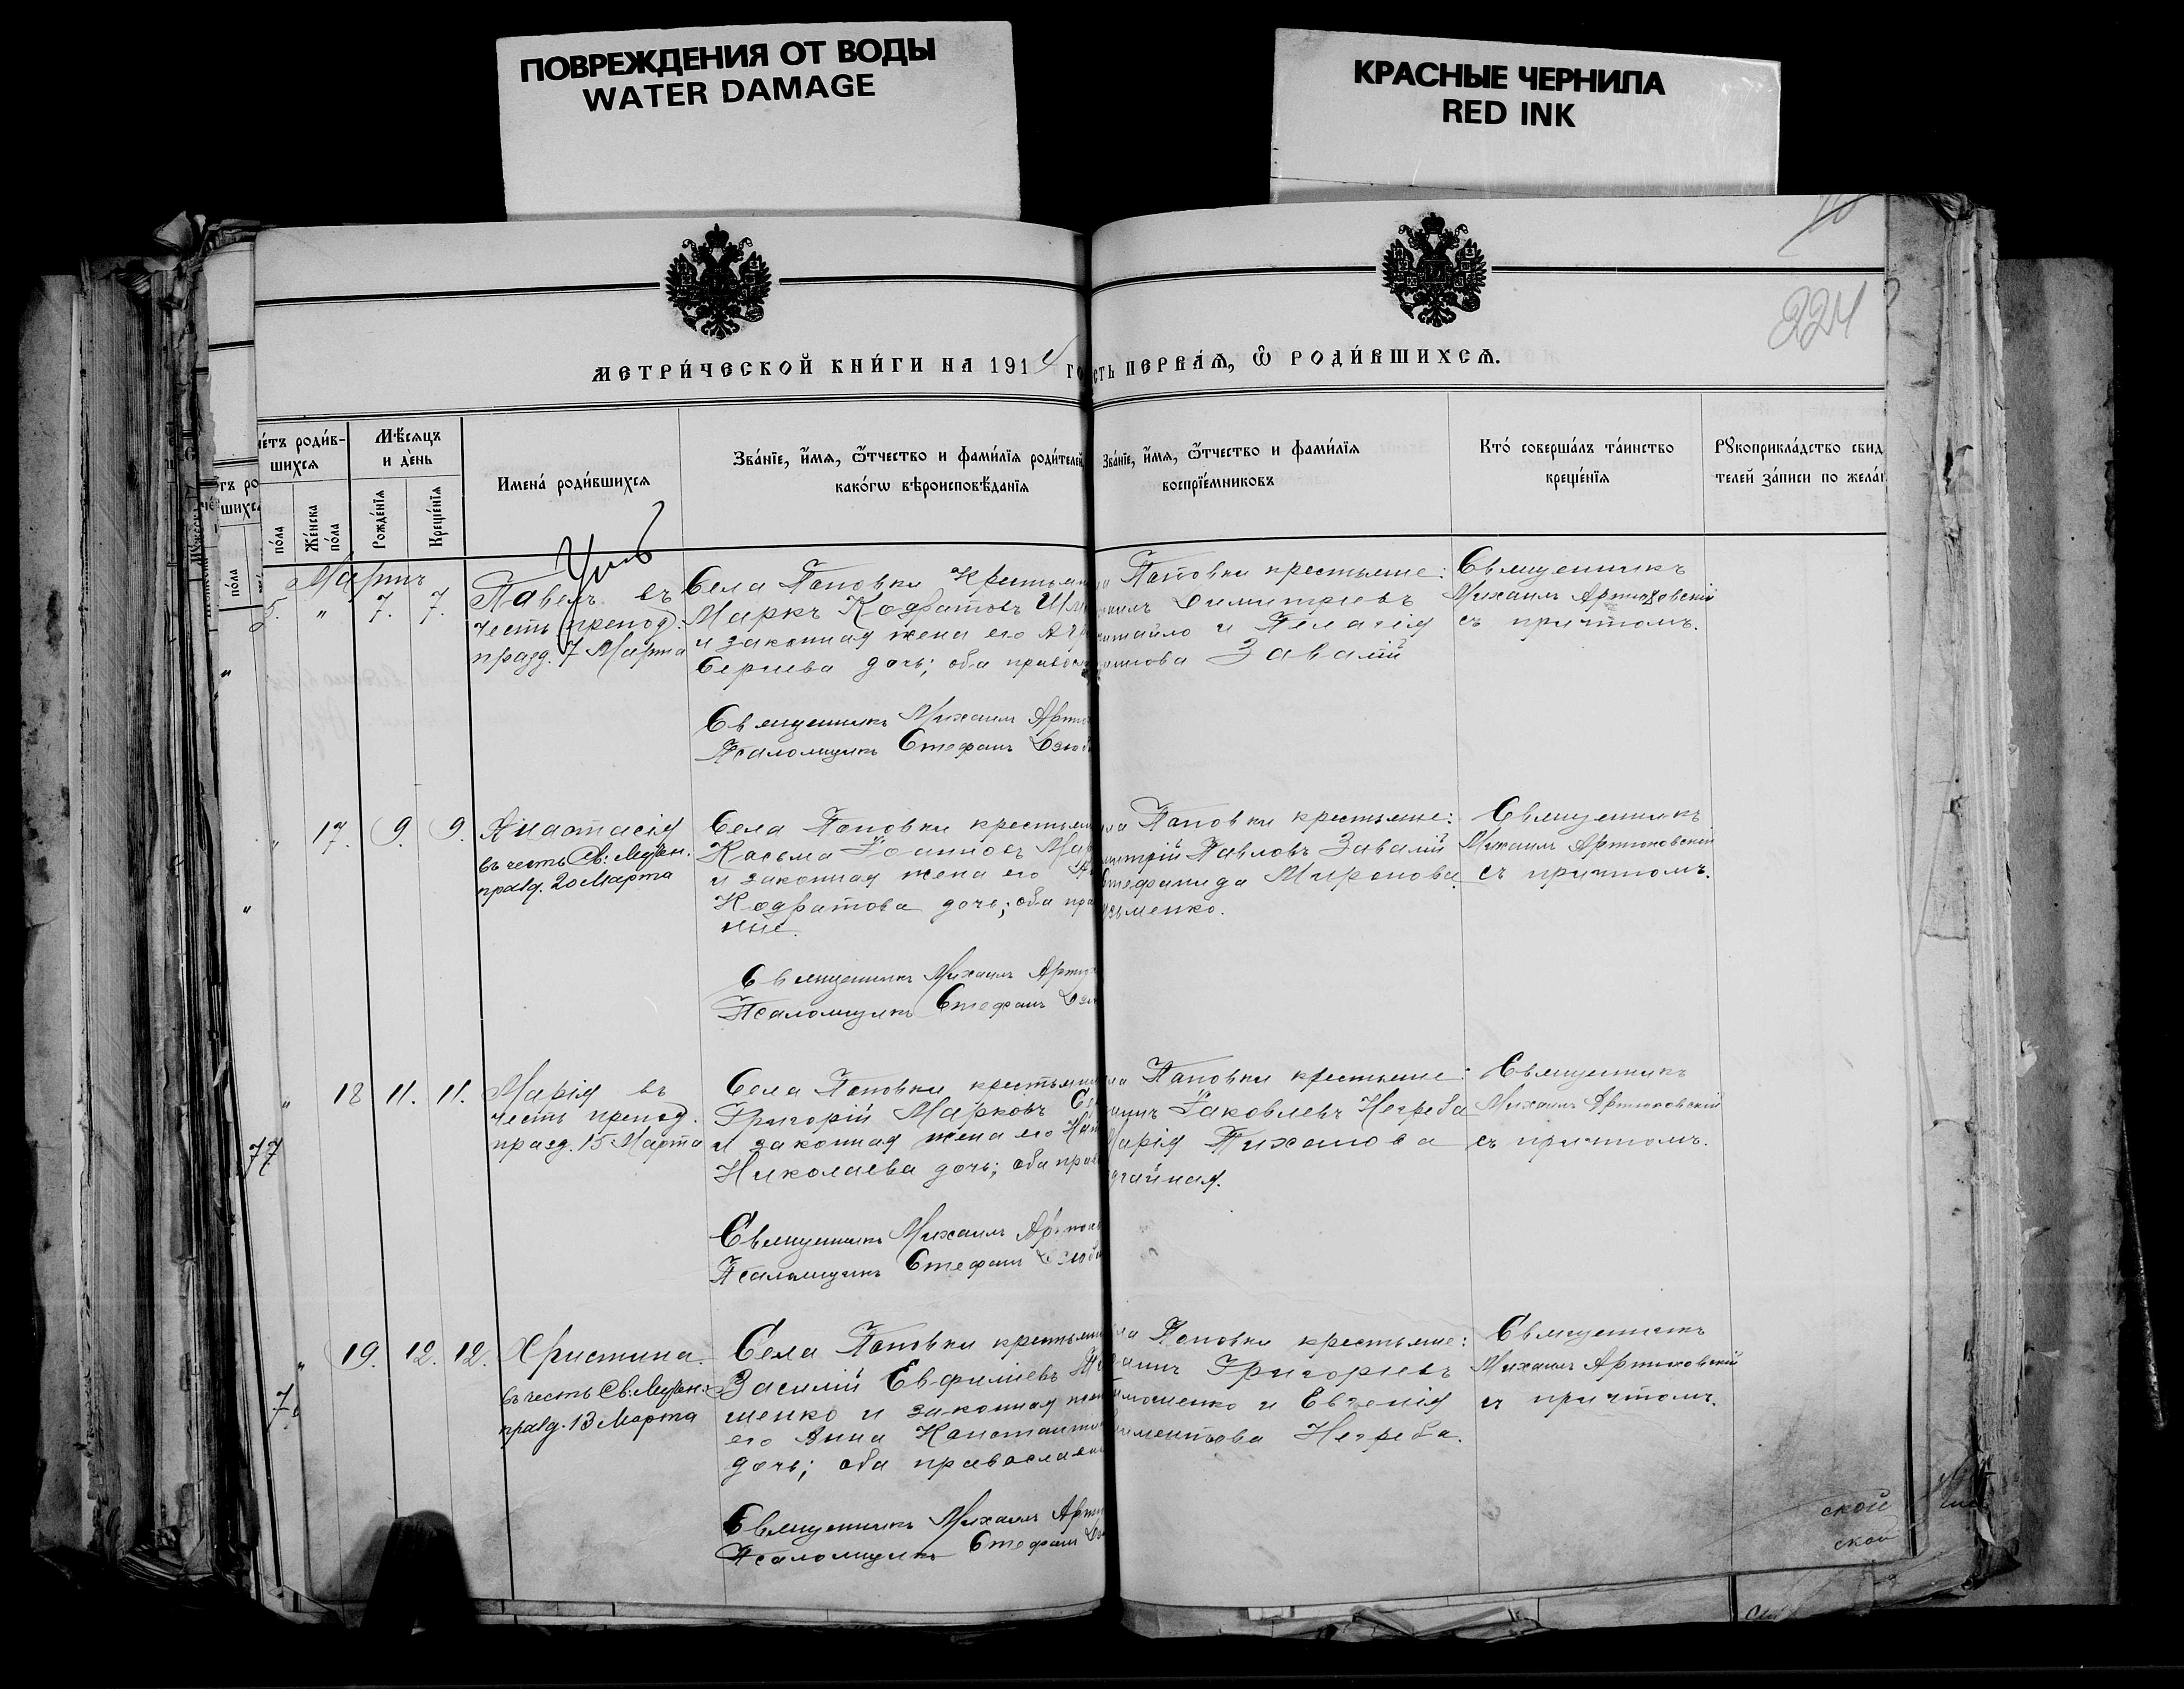 ПОВРЕЖДЕНИЯ ОТ ВОДЫ
WATER DAMAGE
КРАСНЫЕ ЧЕРНИЛА
RED INK
224
МЕТРИ́ЧЕСКОЙ КНИ́ГИ НА 1914 ГО
СТЬ ПЕРВАЯ, Ѿ РОДИ́ВШИХСѦ.
че́тъ роди́в-
шихсѧ
по́ла
Же́нска по́ла
Мѣ́сѧцъ
и де́нь
Рожде́нїѧ
Креще́нїѧ
Имена́ роди́вшихсѧ
Зва́нїе, и́мѧ, ѻ҆́тчество и фами́лїѧ роди́телей
како́гѡ вѣроисповѣ́данїѧ
Зва́нїе, и́мѧ, ѻ҆́тчество и фами́лїѧ
воспрїе́мниковъ
Кто́ соверша́лъ та́инство
креще́нїѧ
Рꙋкоприкла́дство свид
телей за́писи по жела́
Мартъ
5. " 7. 7.
Павелъ въ
честь препод.
празд. 7 Марта
Села Поповки Крестьян
Маркъ Кодратовъ
и законная жена его
Сергиева дочь; оба правосл
Священникъ Михаилъ Арт
Псаломщикъ Стефанъ Дзюб
Поповки крестьяне:
Димитріевъ
и Пелагія
Завалій
Священникъ
Михаилъ Артюховскій
съ причтомъ.
" 17. 9. 9.
Анастасія
въ честь Св: Мучен.
празд. 20 Марта
Села Поповки крестьян
Косьма Іоанновъ Мар
и законная жена его
Кодратова дочь; оба пра
ные.
Священникъ Михаилъ Артю
Псаломщикъ Стефанъ Дзю
Поповки крестьяне:
митрій Павловъ Завалій
Стефанида Миронова
зьменко.
Священникъ
Михаилъ Артюховскій
съ причтомъ.
" 18 11. 11.
Марія въ
честь препод.
празд. 15 Марта
Села Поповки крестьян
Григорій Марковъ
и законная жена его Нат
Николаева дочь; оба прав
Священникъ Михаилъ Артюх
Псаломщикъ Стефанъ Дзюба
Поповки крестьяне:
Іаковлевъ Негреба
Марія Тихонова
Священникъ
Михаилъ Артюховскій
съ причтомъ.
77
" 19. 12. 12.
Христина.
въ честь Св: Мучен.
празд. 13 Марта
Села Поповки крестьян
Василій Евфиміевъ
шенко и законная жен
его Анна Константин
дочь; оба православн
Священникъ Михаилъ Артю
Псаломщикъ Стефанъ
Поповки крестьяне:
Григорьевъ
мошенко и Евгенія
ментова Негреба.
Священникъ
Михаилъ Артюховскій
съ причтомъ.
ской
ской